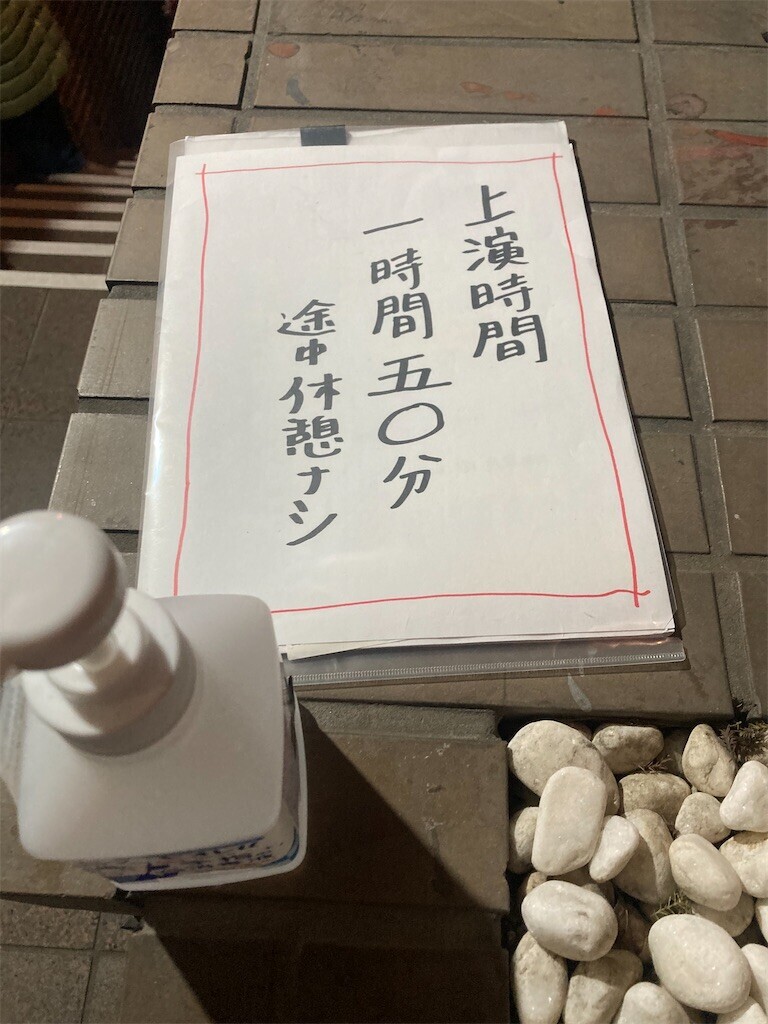 上演時間
一時間五〇分
途中休憩ナシ